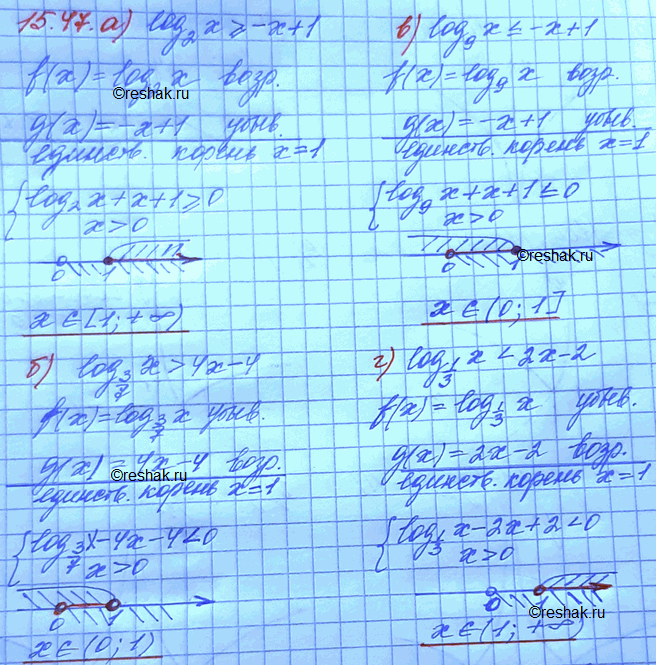 15.47. а) log₂ x ≥ -x+1
f(x) = log₂ x возр.
g(x) = -x+1 убыв.
единств. корень x=1
{ log₂ x + x + 1 ≥ 0
x > 0
0 1
x ∈ [1; +∞)
в) log₉ x ≤ -x+1
f(x) = log₉ x возр.
g(x) = -x+1 убыв.
единств. корень x=1
{ log₉ x + x + 1 ≤ 0
x > 0
0 1
x ∈ (0; 1]
б) log_{3/7} x > 4x-4
f(x) = log_{3/7} x убыв.
g(x) = 4x-4 возр.
единств. корень x=1
{ log_{3/7} x - 4x - 4 < 0
x > 0
0 1
x ∈ (0; 1)
г) log_{1/3} x < 2x-2
f(x) = log_{1/3} x убыв.
g(x) = 2x-2 возр.
единств. корень x=1
{ log_{1/3} x - 2x + 2 < 0
x > 0
0 1
x ∈ (1; +∞)
©reshak.ru
©reshak.ru
©reshak.ru
©reshak.ru